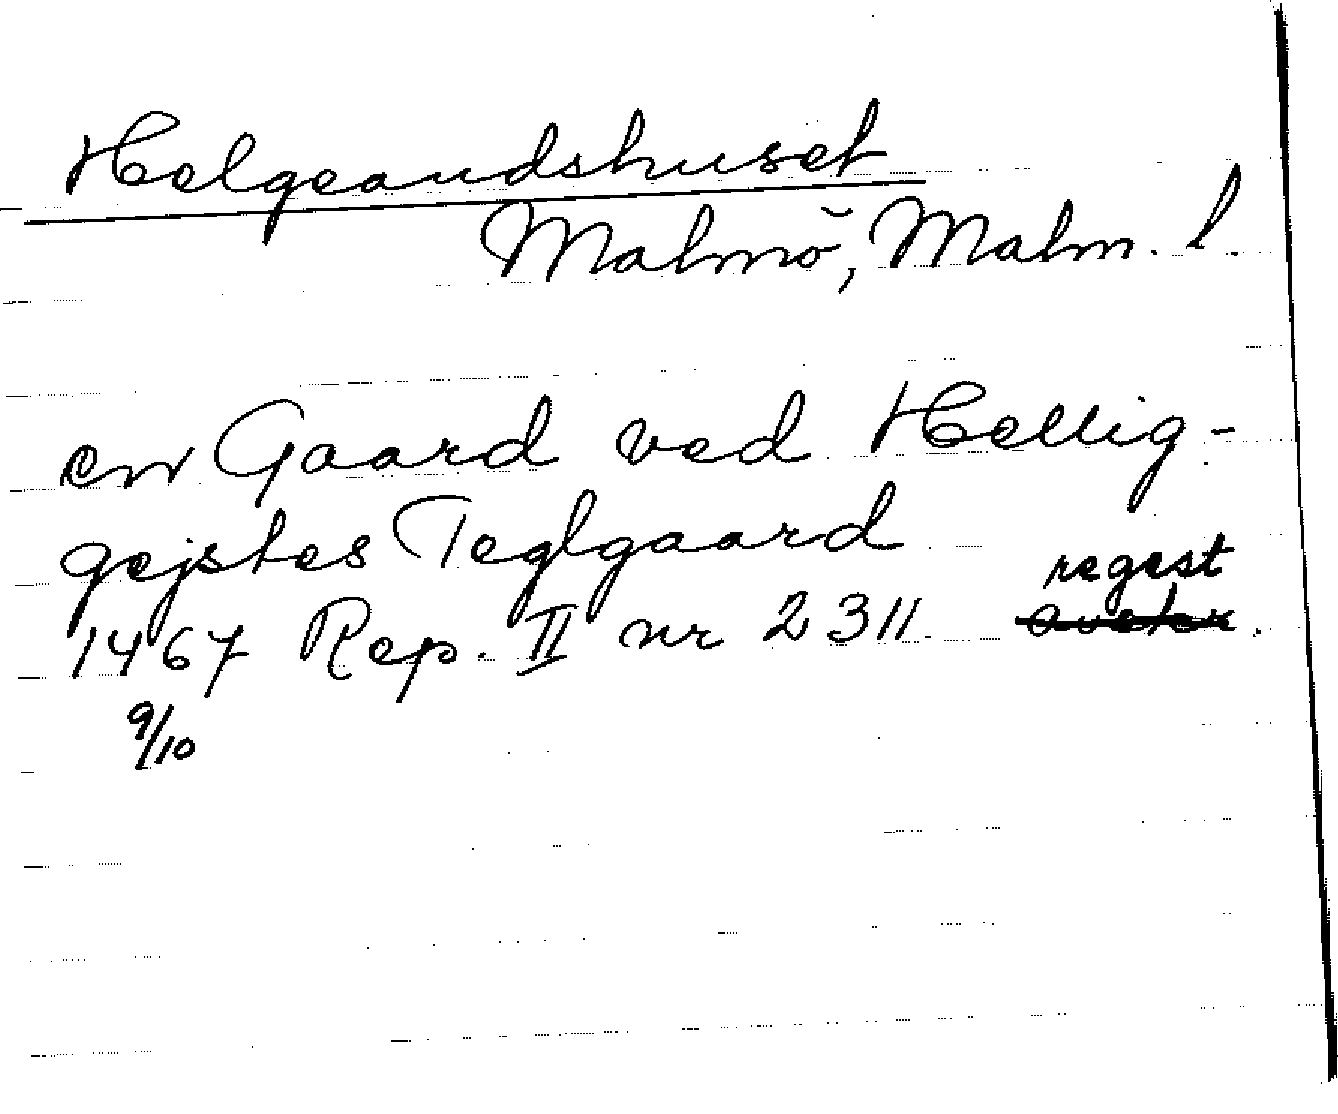 Helgeandshuset
Malmö, Malm. l.
en Gaard ved Hellig-
gejstes Teglgaard
regest
1467 Rep. II nr 2311
9/10